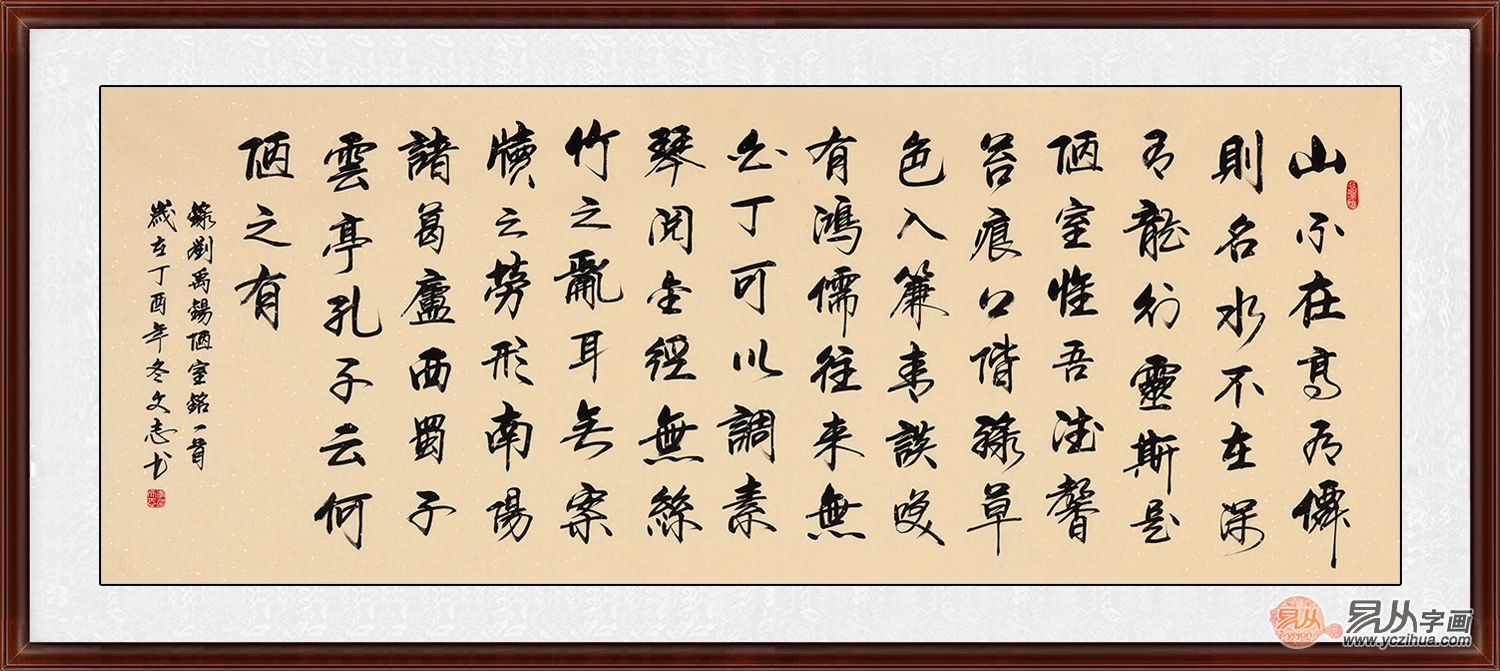 山不在高有僊
則名水不在深
有龍則靈斯是
陋室惟吾德馨
苔痕上階綠草
色入簾青談笑
有鴻儒往来無
白丁可以調素
琴閱金經無絲
竹之亂耳无案
牘之勞形南陽
諸葛廬西蜀子
雲亭孔子云何
陋之有
錄劉禹錫陋室銘一首
歲在丁酉年冬文志书
易从
yejon
易从字画
www.yczihua.com